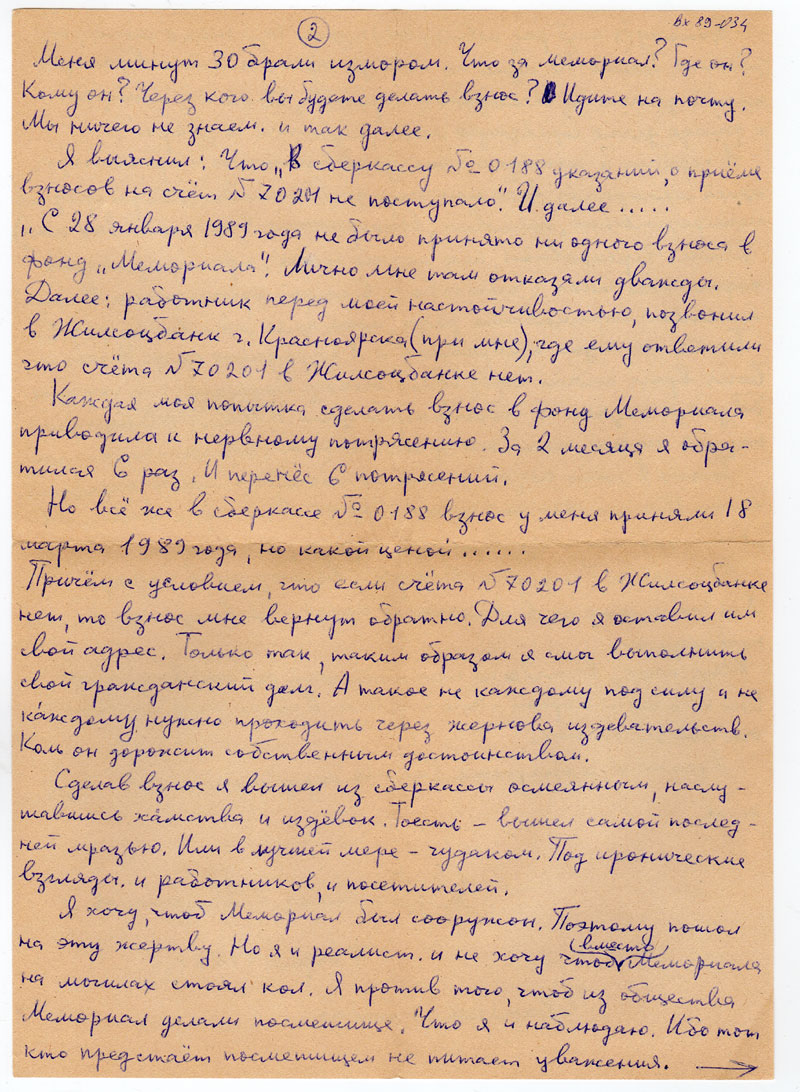 2
Вх 89-034
Меня минут 30 брали измором. Что за мемориал? Где он?
Кому он? Через кого вы будете делать взнос? Идите на почту.
Мы ничего не знаем. и так далее.
Я выяснил: Что „В сберкассу №0188 указаний, о приёме
взносов на счёт №70201 не поступало". И далее.....
„С 28 января 1989 года не было принято ни одного взноса в
фонд „Мемориала". Лично мне там отказали дважды.
Далее: работник перед моей настойчивостью, позвонил
в Жилсоцбанк г. Красноярска (при мне), где ему ответили
что счёта №70201 в Жилсоцбанке нет.
Каждая моя попытка сделать взнос в фонд Мемориала
приводила к нервному потрясению. За 2 месяца я обра-
тился 6 раз. И перенёс 6 потрясений.
Но всё же в сберкассе №0188 взнос у меня приняли 18
марта 1989 года, но какой ценой......
Причём с условием, что если счёта №70201 в Жилсоцбанке
нет, то взнос мне вернут обратно. Для чего я оставил им
свой адрес. Только так, таким образом я смог выполнить
свой гражданский долг. А такое не каждому под силу и не
каждому нужно проходить через жернова издевательств.
Коль он дорожит собственным достоинством.
Сделав взнос я вышел из сберкассы осмеянным, наслу-
шавшись хамства и издёвок. Тоесть – вышел самой послед-
ней мразью. Или в лучшей мере – чудаком. Под иронические
взгляды. и работников, и посетителей.
Я хочу, чтоб Мемориал был сооружон. Поэтому пошол
на эту жертву. Но я и реалист. и не хочу чтоб (вместо) Мемориала
на могилах стоял кол. Я против того, чтоб из общества
Мемориал делали посмешище. Что я и наблюдаю. Ибо тот
кто предстаёт посмешищем не питает уважения. →